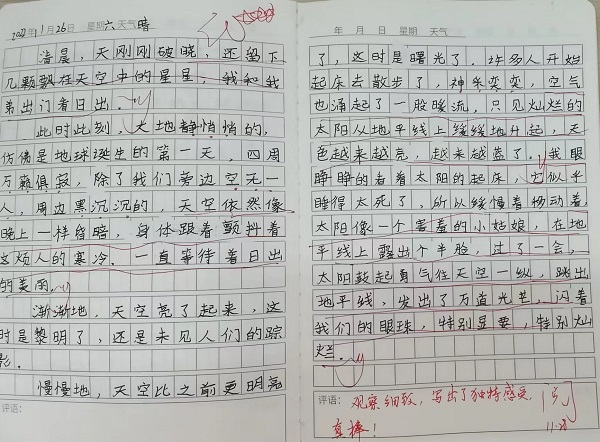 2022年11月26日 星期六 天气暗
清晨，天刚刚破晓，还留下
几颗飘在天空中的星星，我和我
弟出门看日出。
此时此刻，大地静悄悄的，
仿佛是地球诞生的第一天，四周
万籁俱寂，除了我们旁边空无一
人，周边黑沉沉的，天空依然像
晚上一样昏暗，身体跟着颤抖着
这烦人的寒冷。一直等待着日出
的美丽。
渐渐地，天空亮了起来，这
时是黎明了，还是未见人们的踪
影。
慢慢地，天空比之前更明亮
评语：
年 月 日 星期 天气
了，这时是曙光了。许多人开始
起床去散步了，神采奕奕，空气
也涌起了一股暖流，只见灿烂的
太阳从地平线上缓缓地升起，天
色越来越亮，越来越蓝了。我眼
睁睁的看着太阳的起床，它似乎
睡得太死了，所以缓慢着移动着，
太阳像一个害羞的小姑娘，在地
平线上露出个半脸，过了一会，
太阳鼓起勇气往天空一纵，跳出
地平线，发出了万道光芒，闪着
我们的眼珠，特别显要，特别灿
烂。
评语：观察细致，写出了独特感受，
真棒！
11.28